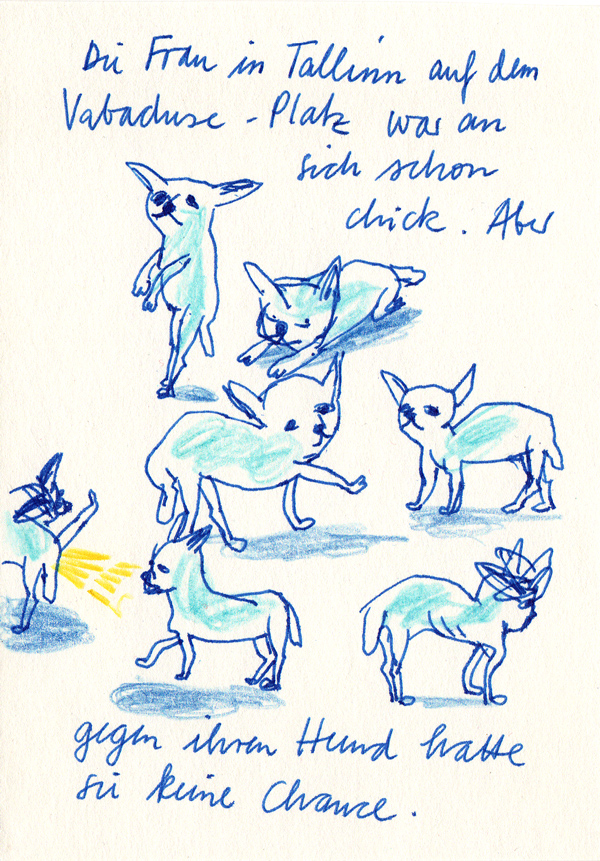 Die Frau in Tallinn auf dem
Vabaduse-Platz war an
sich schon
chick. Aber
gegen ihren Hund hatte
sie keine Chance.